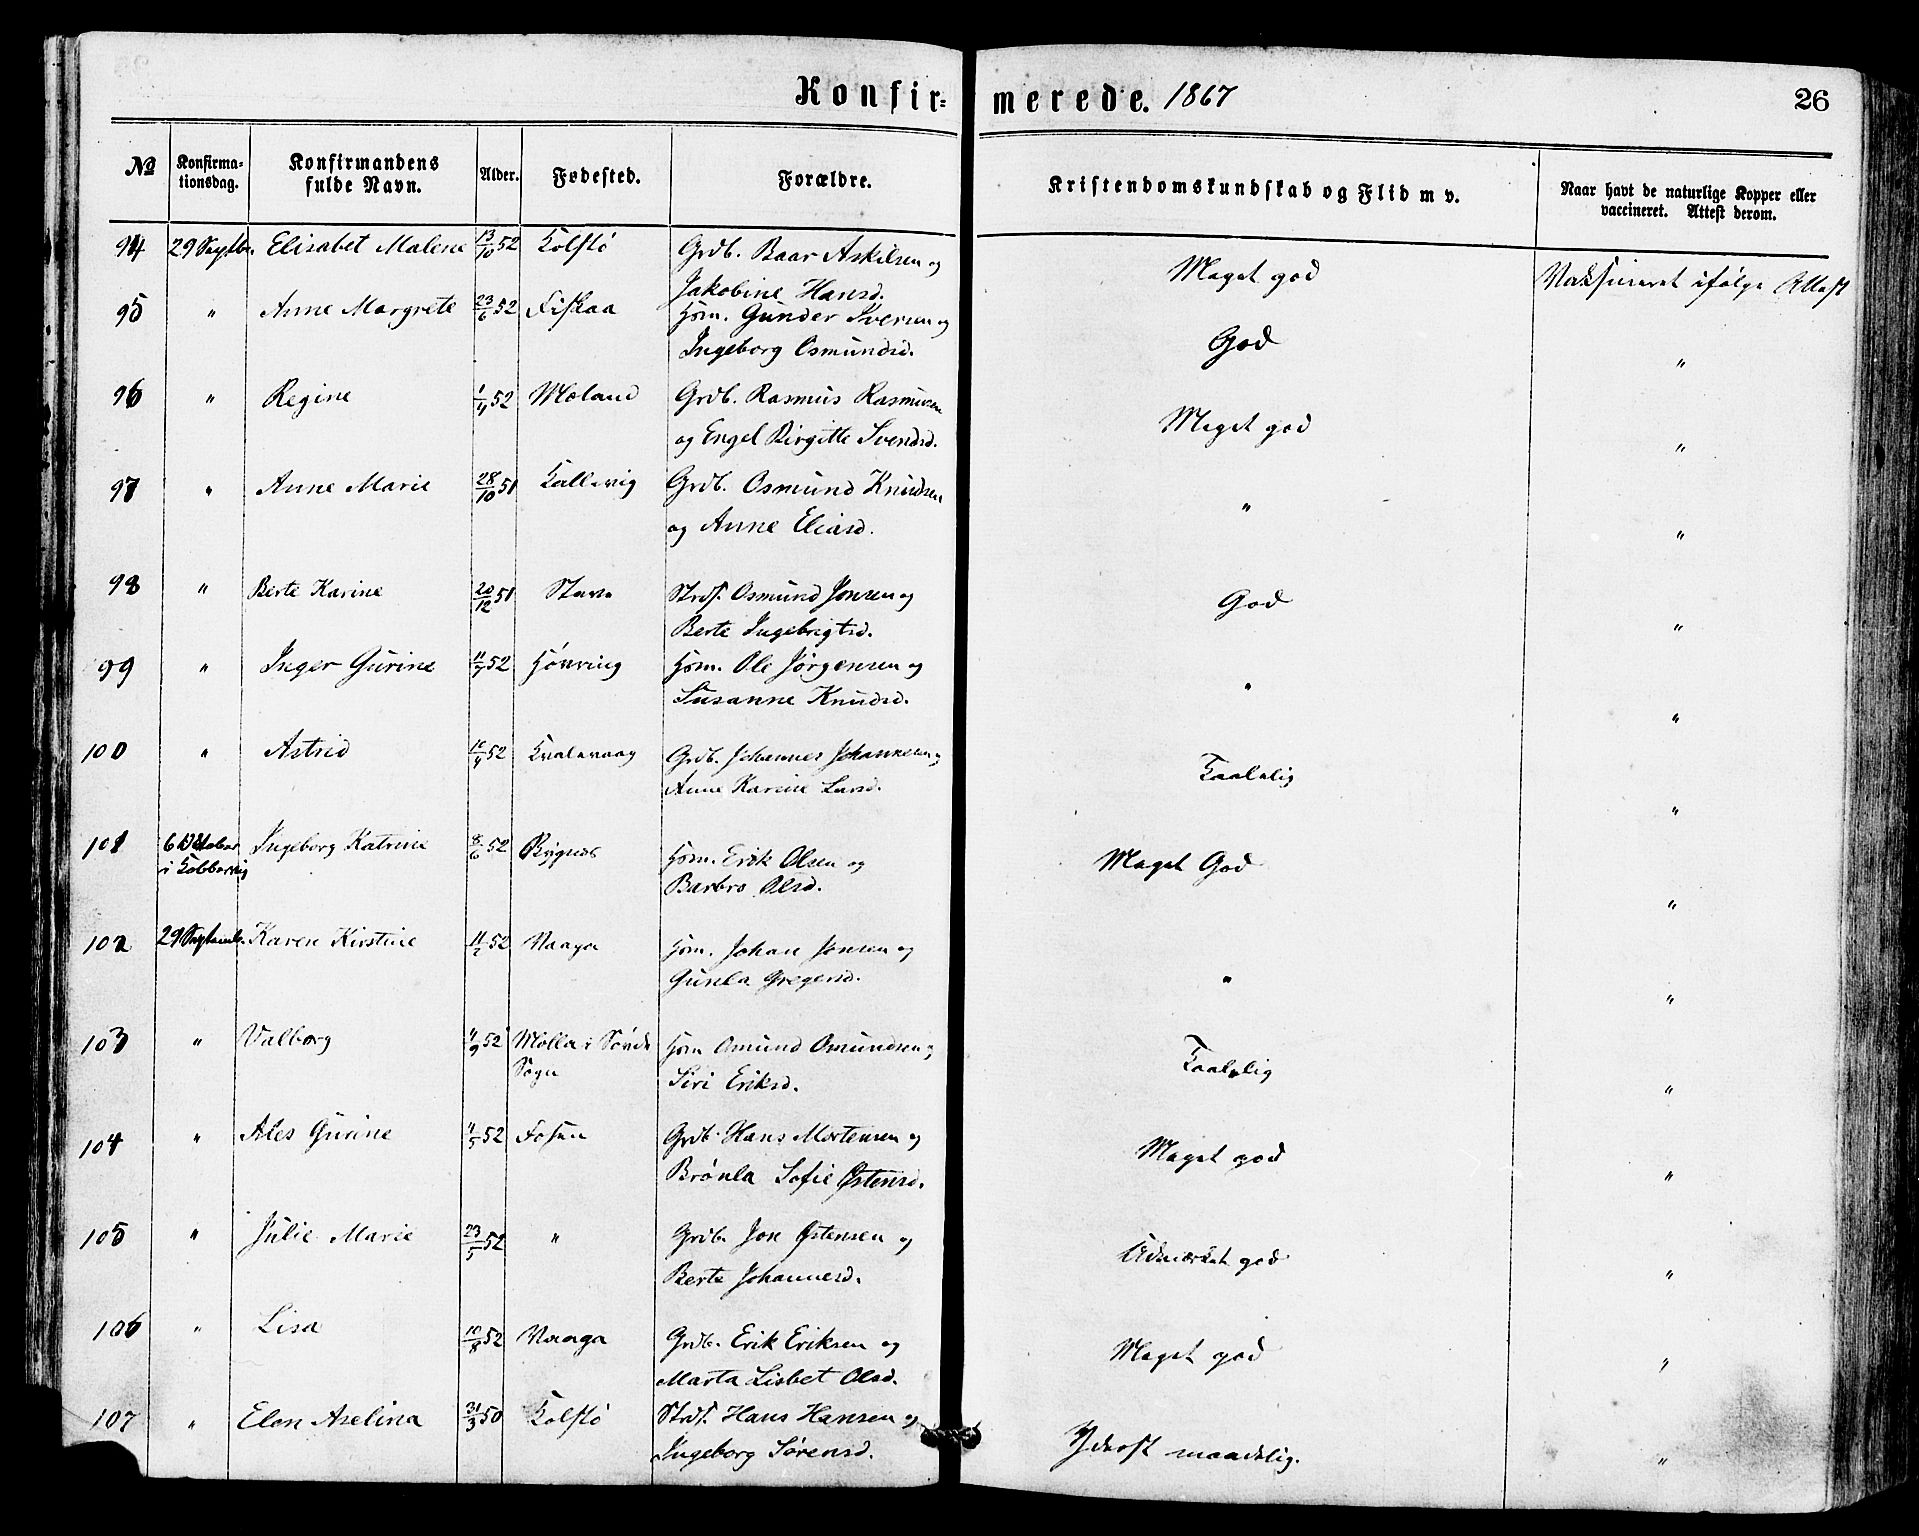 Konfir= merede. 1867 26
No Konfirma-tionsdag. Konfirmandens fulde Navn. Alder. Fødested. Forældre. Kristendomskundskab og Flid m v. Naar havt de naturlige Kopper eller vaccineret. Attest derom.
94 29 Septbr. Elisabet Malene 13/10 52 Kolstø Grdb. Baar Askilsen og Meget god Vaksineret ifølge Attest
Jakobine Hansd.
95 " Anne Margrete 23/6 52 Fiskaa Hsm. Gunder Iversen og God "
Ingeborg Osmundsd.
96 " Regine 1/4 52 Mæland Grdb. Rasmus Rasmusen Meget god "
og Engel Birgitte Svendsd.
97 " Anne Marie 28/10 51 Kallevig Grdb. Osmund Knudsen " "
og Anne Eliasd.
98 " Berte Karine 20/12 51 Stava Strds. Osmund Jonsen og God "
Berte Ingebrigtsd.
99 " Inger Gurine 52 Høvring Hsm. Ole Jørgensen og " "
Susanne Knudsd.
100 " Astrid 10/4 52 Kvalavaag Grdb. Johannes Johannesen og Taalelig "
Anne Karine Larsd.
101 6 Oktober Ingeborg Katrine 8/6 52 Bygnes Hsm. Erik Olsen og Meget God "
i Kobbervig Barbro Olsd.
102 29 Septemb. Karen Kirstine 11/2 52 Vaaga Hsm. Johan Jonsen og " "
Gunla Gregersd.
103 " Valborg 4/9 52 Mølla i Sønde Hsm Omund Omundsen og Taalelig "
Sogn Siri Eriksd.
104 " Ales Gurine 4/5 52 Fosen Grdb. Hans Mortensen og Meget god "
Brønla Sofie Østensd.
105 " Julie Marie 23/5 52 " Grdb. Jon Østensen og Udmærket god "
Berte Johannesd.
106 " Lisa 10/8 52 Vaaga Grdb. Erik Eriksen og Meget god "
Marta Lisbet Olsd.
107 " Elen Aselina 31/3 50 Kolstø Strds. Hans Hansen og Yderst maadelig. "
Ingeborg Sørensd.